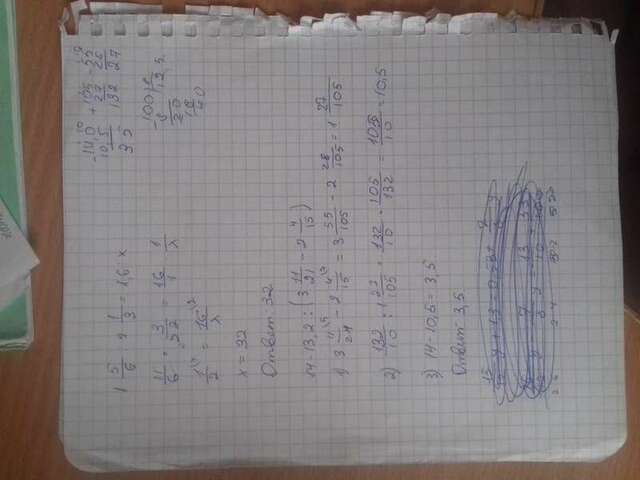 1 5/6 : 3 1/3 = 1,6 : x
11/6 · 3/22 = 16/1 · 1/x
1/2 = 16/x
x = 32
Ответ: 32
14-13,2 : (3 11/21 - 2 4/15)
1) 3 11/21 - 2 4/15 = 3 55/105 - 2 28/105 = 1 27/105
2) 132/10 : 1 27/105 = 132/10 · 105/132 = 105/10 = 10,5
3) 14-10,5 = 3,5
Ответ: 3,5
14,0
10,5
3 5
+ 105
27
132
- 55
28
27
100 8
8 12,5
20
16
40